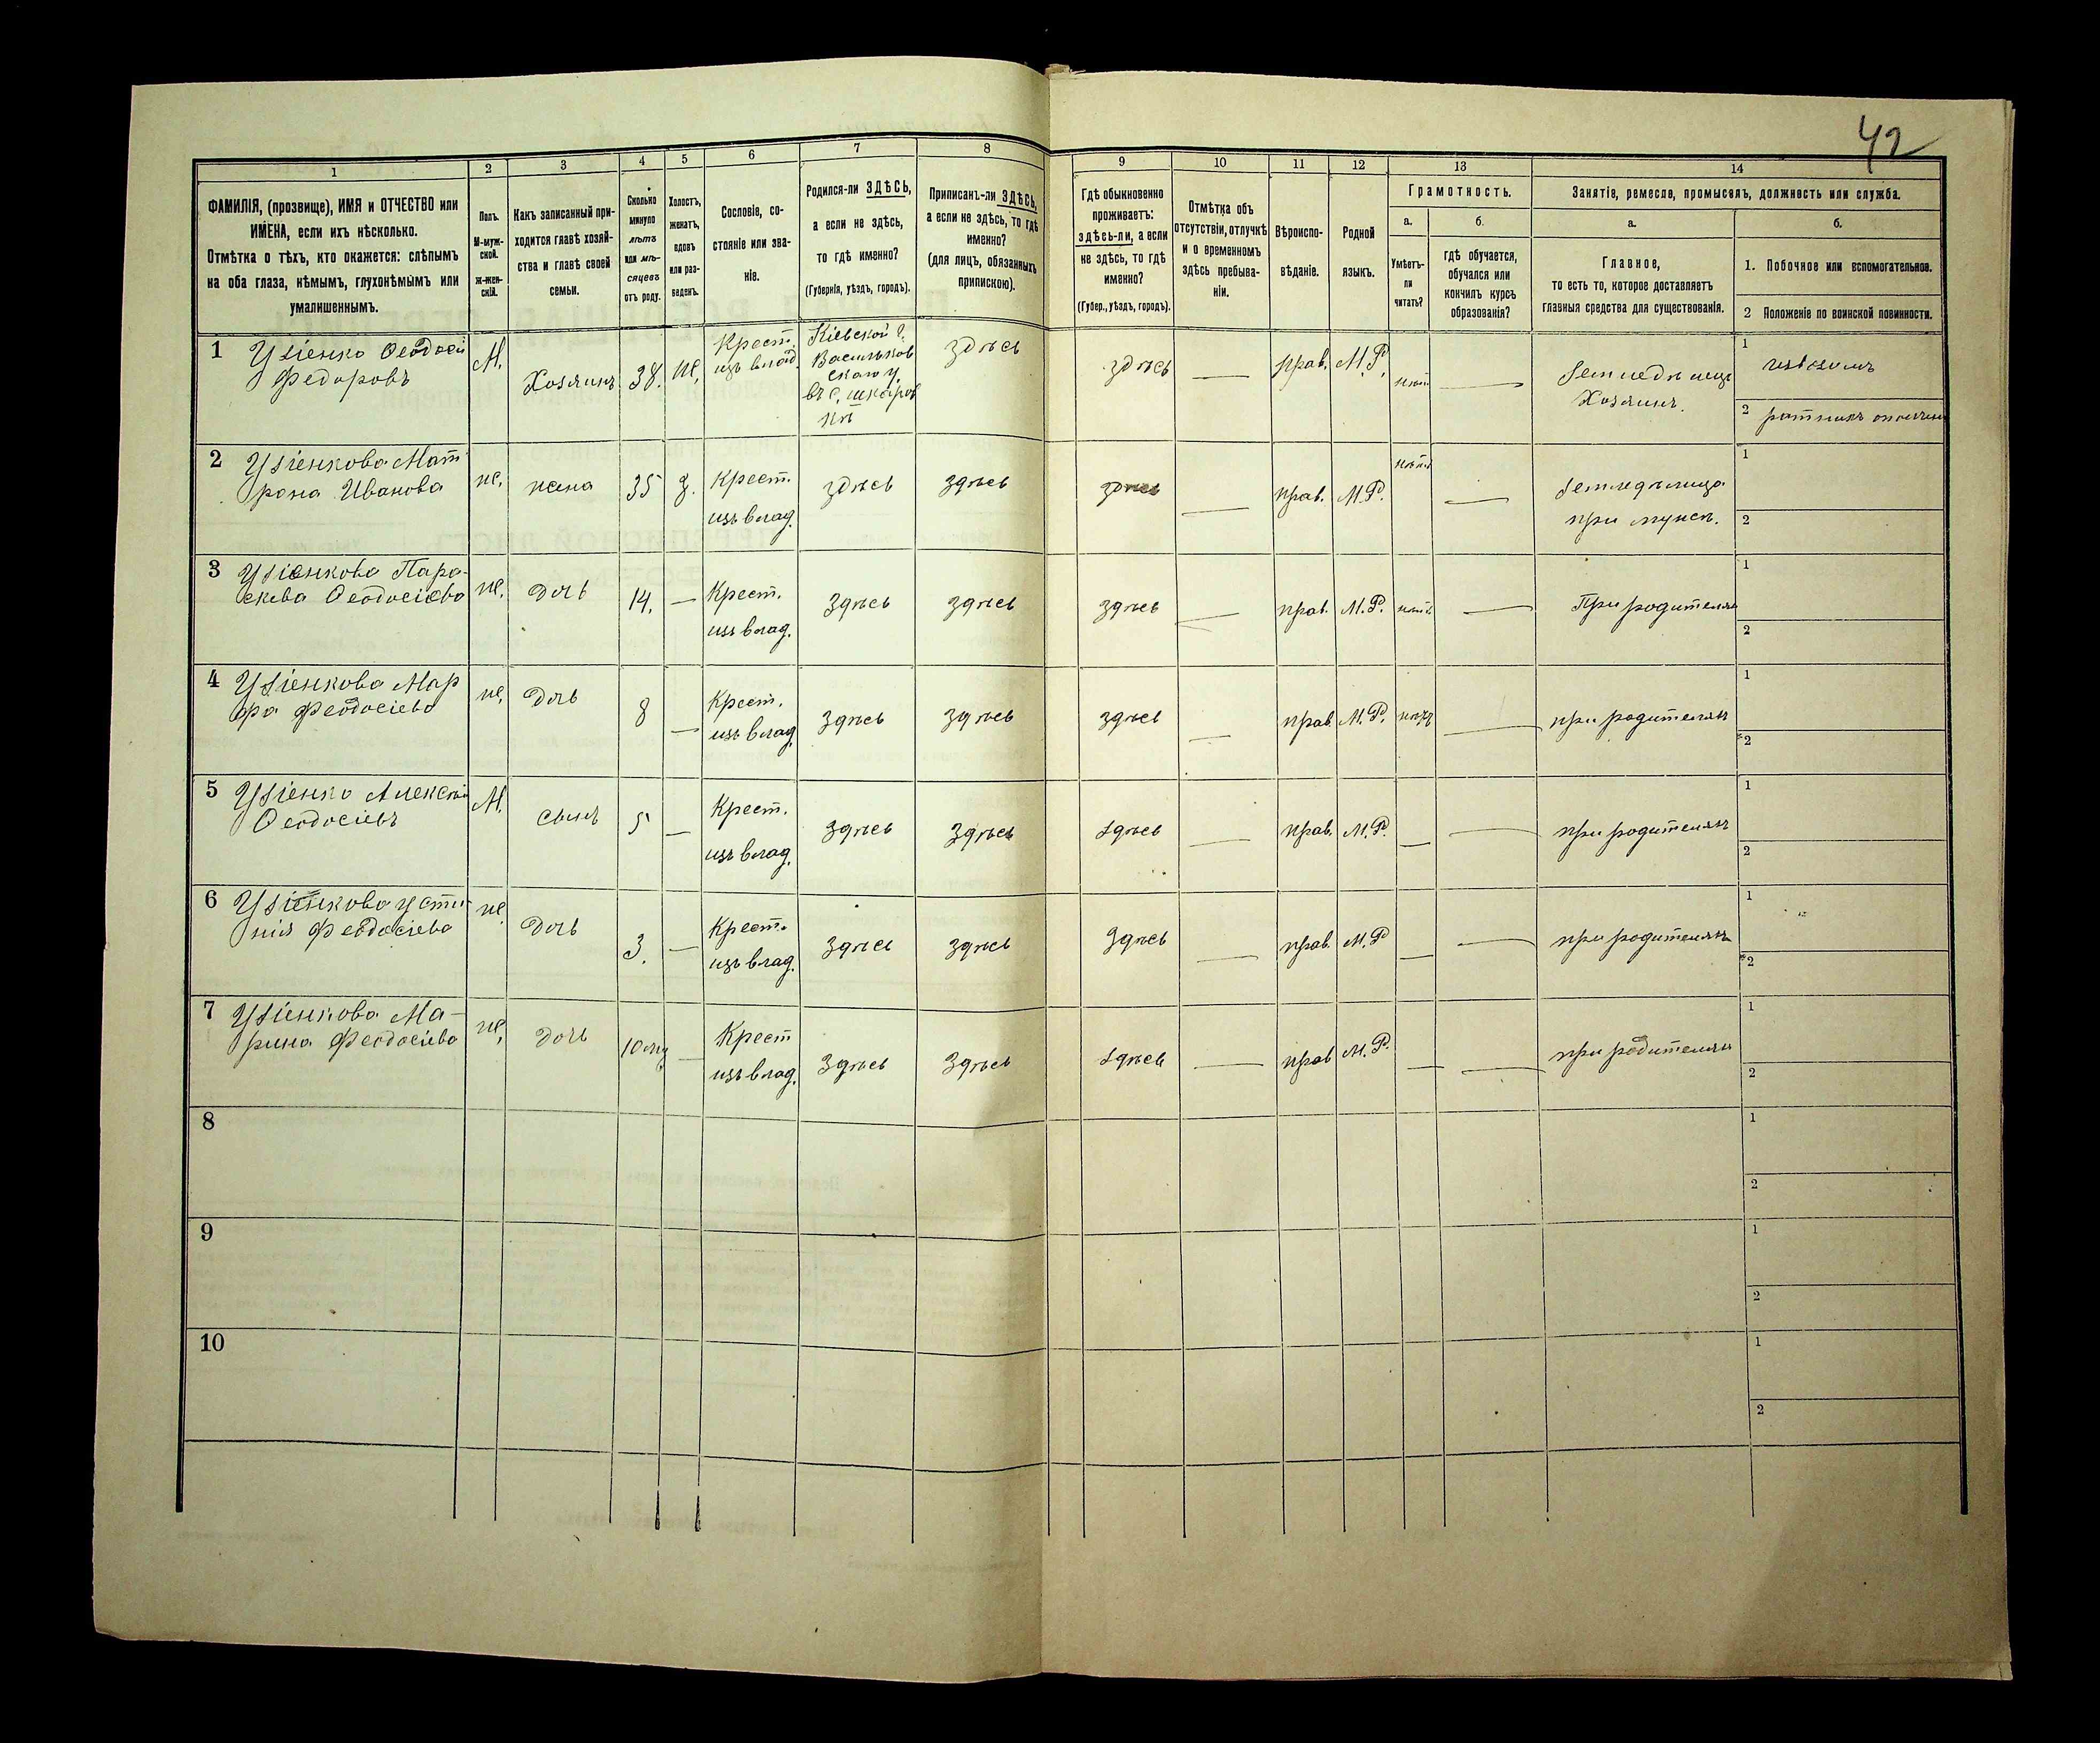 42
1 2 3 4 5 6 7 8 9 10 11 12 13 14
ФАМИЛІЯ, (прозвище), ИМЯ и ОТЧЕСТВО или
ИМЕНА, если ихъ нѣсколько.
Отмѣтка о тѣхъ, кто окажется: слѣпымъ
на оба глаза, нѣмымъ, глухонѣмымъ или
умалишеннымъ.
Полъ.
М-муж-
ской.
ж-жен-
скій.
Какъ записанный при-
ходится главѣ хозяй-
ства и главѣ своей
семьи.
Сколько
минуло
лѣтъ
или мѣ-
сяцевъ
отъ роду.
Холостъ,
женатъ,
вдовъ
или раз-
веденъ.
Сословіе, со-
стояніе или зва-
ніе.
Родился-ли ЗДѢСЬ,
а если не здѣсь,
то гдѣ именно?
(Губернія, уѣздъ, городъ).
Приписанъ-ли ЗДѢСЬ,
а если не здѣсь, то гдѣ
именно?
(для лицъ, обязанныхъ
припискою).
Гдѣ обыкновенно
проживаетъ:
здѣсь-ли, а если
не здѣсь, то гдѣ
именно?
(Губер., уѣздъ, городъ).
Отмѣтка объ
отсутствіи, отлучкѣ
и о временномъ
здѣсь пребыва-
ніи.
Вѣроиспо-
вѣданіе.
Родной
языкъ.
Грамотность.
а.
Умѣетъ-
ли
читать?
б.
гдѣ обучается,
обучался или
кончилъ курсъ
образованія?
Занятіе, ремесло, промыселъ, должность или служба.
а.
Главное,
то есть то, которое доставляетъ
главныя средства для существованія.
б.
1. Побочное или вспомогательное.
2 Положеніе по воинской повинности.
1
Феодосій
Федоровъ
М.
Хозяинъ
38.
ж.
Крест.
изъ влад.
Кіевской г.
Васильков
скаго у.
въ с.
здѣсь
здѣсь
—
прав.
М.Р.
нѣтъ
—
Хозяинъ.
1 извозомъ
2 ратникъ
2
Мат
рона Иванова
ж.
жена
35
з.
Крест.
изъ влад.
здѣсь
здѣсь
здѣсь
—
прав.
М.Р.
нѣтъ
—
при мужѣ.
1
2
3
Пара-
скева Феодосіева
ж.
дочь
14.
—
Крест.
изъ влад.
здѣсь
здѣсь
здѣсь
—
прав.
М.Р.
нѣтъ
—
При родителяхъ
1
2
4
Мар
фа Феодосіева
ж.
дочь
8
—
Крест.
изъ влад.
здѣсь
здѣсь
здѣсь
—
прав.
М.Р.
нѣтъ
—
при родителяхъ
1
2
5
Алексѣй
Феодосіевъ
М.
сынъ
5
—
Крест.
изъ влад.
здѣсь
здѣсь
здѣсь
—
прав.
М.Р.
—
—
при родителяхъ
1
2
6
Усти
нія Феодосіева
ж.
дочь
3.
—
Крест.
изъ влад.
здѣсь
здѣсь
здѣсь
—
прав.
М.Р
—
—
при родителяхъ
1
2
7
Ма-
рина Феодосіева
ж.
дочь
10
—
Крест
изъ влад.
здѣсь
здѣсь
здѣсь
—
прав
М.Р.
—
—
при родителяхъ
1
2
8
1
2
9
1
2
10
1
2